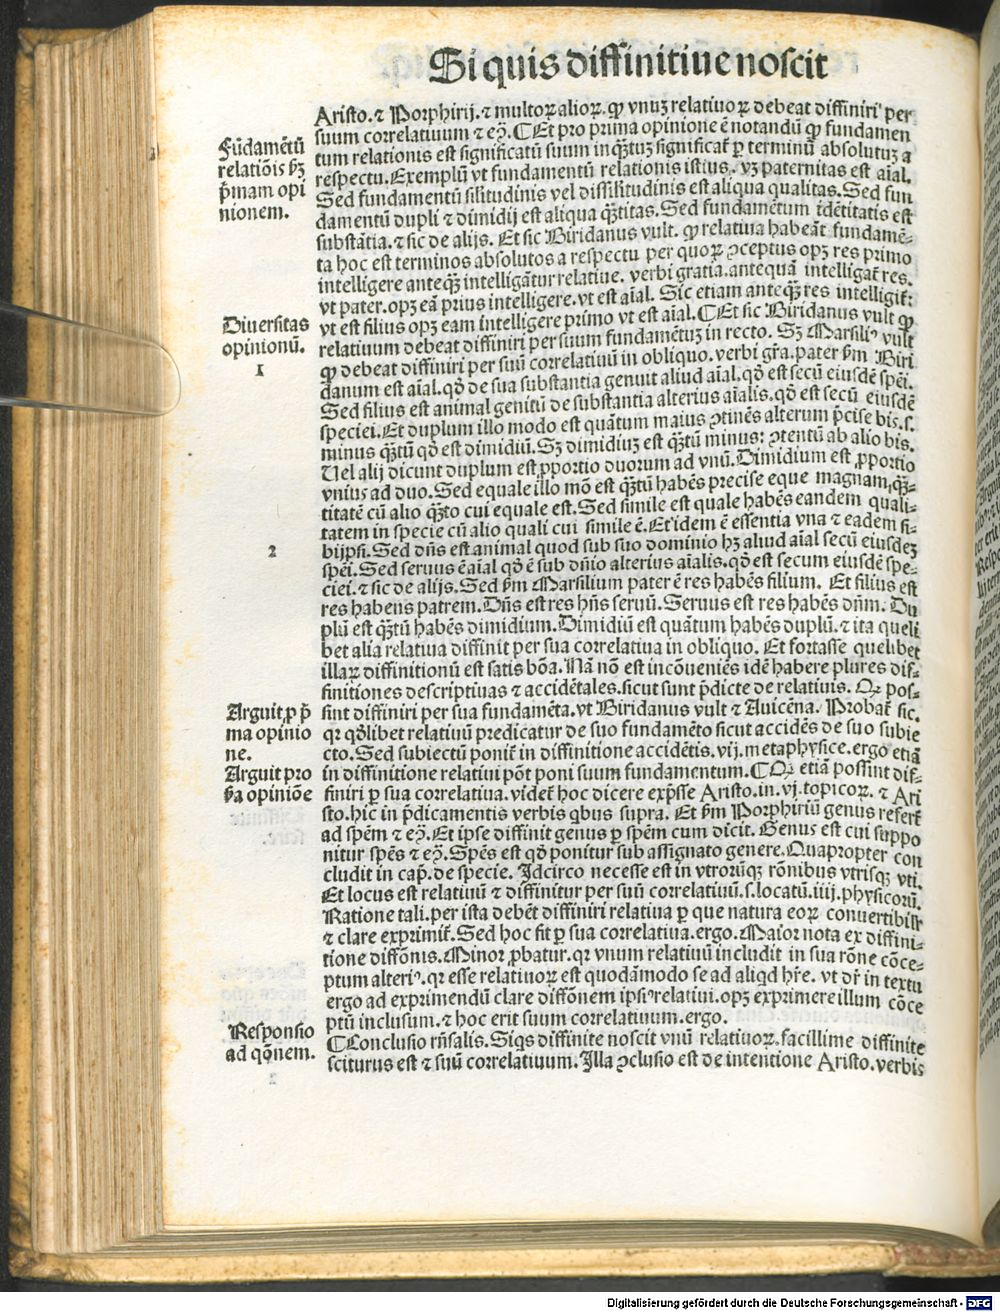 Si quis diffinitiue noscit
Aristo. ⁊ Porphirij. ⁊ multoꝝ alioꝝ. ꝙ vnuꝫ relatiuoꝝ debeat diffiniri per
suum correlatiuum ⁊ eꝯ. ⸿ Et pro prima opinione ē notandū ꝙ fundamen
tum relationis est significatū suum inqꝫtuꝫ significat᷑ ꝑ terminū absolutuꝫ a
respectu. Exemplū vt fundamentū relationis istius. vꝫ paternitas est aīal.
Sed fundamentū silitudinis vel dissilitudinis est aliqua qualitas. Sed fun
damentū dupli ⁊ dimidij est aliqua qꝫtitas. Sed fundamētum idētitatis est
substātia. ⁊ sic de alijs. Et sic Biridanus vult. ꝙ relatiua habeāt fundamē⸗
ta hoc est terminos absolutos a respectu per quoꝝ ꝯceptus opꝫ res primo
intelligere anteqꝫ intelligātur relatiue. verbi gratia. antequā intelligat᷑ res.
vt pater. opꝫ eā prius intelligere. vt est aīal. Sic etiam anteqꝫ res intelligit᷑:
vt est filius opꝫ eam intelligere primo vt est aīal. ⸿ Et sic Biridanus vult ꝙ
relatiuum debeat diffiniri per suum fundamētuꝫ in recto. Sꝫ Marsiliꝰ vult
ꝙ debeat diffiniri per suū correlatiuū in obliquo. verbi gr̄a. pater ẜm Biri
danum est aīal. qd̄ de sua substantia genuit aliud aīal. qd̄ est secū eiusdē sp̄ei.
Sed filius est animal genitū de substantia alterius aīalis. qd̄ est secū eiusdē
speciei. Et duplum illo modo est quātum maius ꝯtinēs alterum p̄cise bis. s.
minus qꝫtū qd̄ est dimidiū. Sꝫ dimidiuꝫ est qꝫtū minus: ꝯtentū ab alio bis.
Uel alij dicunt duplum est ꝓportio duorum ad vnū. Dimidium est ꝓportio
vnius ad duo. Sed equale illo mō est qꝫtū habēs precise eque magnam qꝫ⸗
titatē cū alio qꝫto cui equale est. Sed simile est quale habēs eandem quali⸗
tatem in specie cū alio quali cui simile ē. Et idem ē essentia vna ⁊ eadem si⸗
bijpsi. Sed dn̄s est animal quod sub suo dominio hꝫ aliud aīal secū eiusdeꝫ
sp̄ei. Sed seruus ē aīal qd̄ ē sub dn̄io alterius aīalis. qd̄ est secum eiusdē spe⸗
ciei. ⁊ sic de alijs. Sed ẜm Marsilium pater ē res habēs filium. Et filius est
res habens patrem. Dn̄s est res hn̄s seruū. Seruus est res habēs dn̄m. Du
plū est qꝫtū habēs dimidium. Dimidiū est quātum habēs duplū. ⁊ ita queli
bet alia relatiua diffinit per sua correlatiua in obliquo. Et fortasse quelibet
illaꝝ diffinitionū est satis bōa. Nā nō est incōueniēs idē habere plures dif⸗
finitiones descriptiuas ⁊ accidētales. sicut sunt p̄dicte de relatiuis. Qꝝ pos⸗
sint diffiniri per sua fundamēta. vt Biridanus vult ⁊ Auicēna. Probat᷑ sic.
qꝛ qd̄libet relatiuū predicatur de suo fundamēto sicut accidēs de suo subie
cto. Sed subiectū ponit᷑ in diffinitione accidētis. vij. metaphysice. ergo etiā
in diffinitione relatiui pōt poni suum fundamentum. ⸿ Qꝝ etiā possint dif⸗
finiri ꝑ sua correlatiua. videt᷑ hoc dicere exp̄sse Aristo. in. vj. topicoꝝ. ⁊ Ari
sto. hic in p̄dicamentis verbis qbus supra. Et ẜm Porphiriū genus refert᷑
ad spēm ⁊ eꝯ. Et ipse diffinit genus ꝑ spēm cum dicit. Genus est cui suppo
nitur spēs ⁊ eꝯ. Spēs est qd̄ ponitur sub assignato genere. Quapropter con
cludit in cap. de specie. Idcirco necesse est in vtrorūqꝫ rōnibus vtrisqꝫ vti.
Et locus est relatiuū ⁊ diffinitur per suū correlatiuū. s. locatū. iiij. physicoꝝ.
Ratione tali. per ista debēt diffiniri relatiua ꝑ que natura eoꝝ conuertibilr̄
⁊ clare exprimit᷑. Sed hoc fit ꝑ sua correlatiua. ergo. Maior nota ex diffini⸗
tione diffōnis. Minor ꝓbatur. qꝛ vnum relatiuū includit in sua rōne cōce⸗
ptum alteriꝰ. qꝛ esse relatiuoꝝ est quodāmodo se ad aliqd hr̄e. vt dr̄ in textu
ergo ad exprimendū clare diffōnem ipsiꝰ relatiui. opꝫ exprimere illum cōce
ptū inclusum. ⁊ hoc erit suum correlatiuum. ergo.
⸿ Conclusio rn̄salis. Siqs diffinite noscit vnū relatiuoꝝ. facillime diffinite
sciturus est ⁊ suū correlatiuum. Illa ꝯclusio est de intentione Aristo. verbis
Fūdamētū
relatiōis ẜꝫ
p̄mam opi
nionem.
Diuersitas
opinionū.
1
2
Arguit ꝓ p̄
ma opinio
ne.
Arguit pro
ẜa opiniōe
Responsio
ad qōnem.
Digitalisierung gefördert durch die Deutsche Forschungsgemeinschaft - DFG